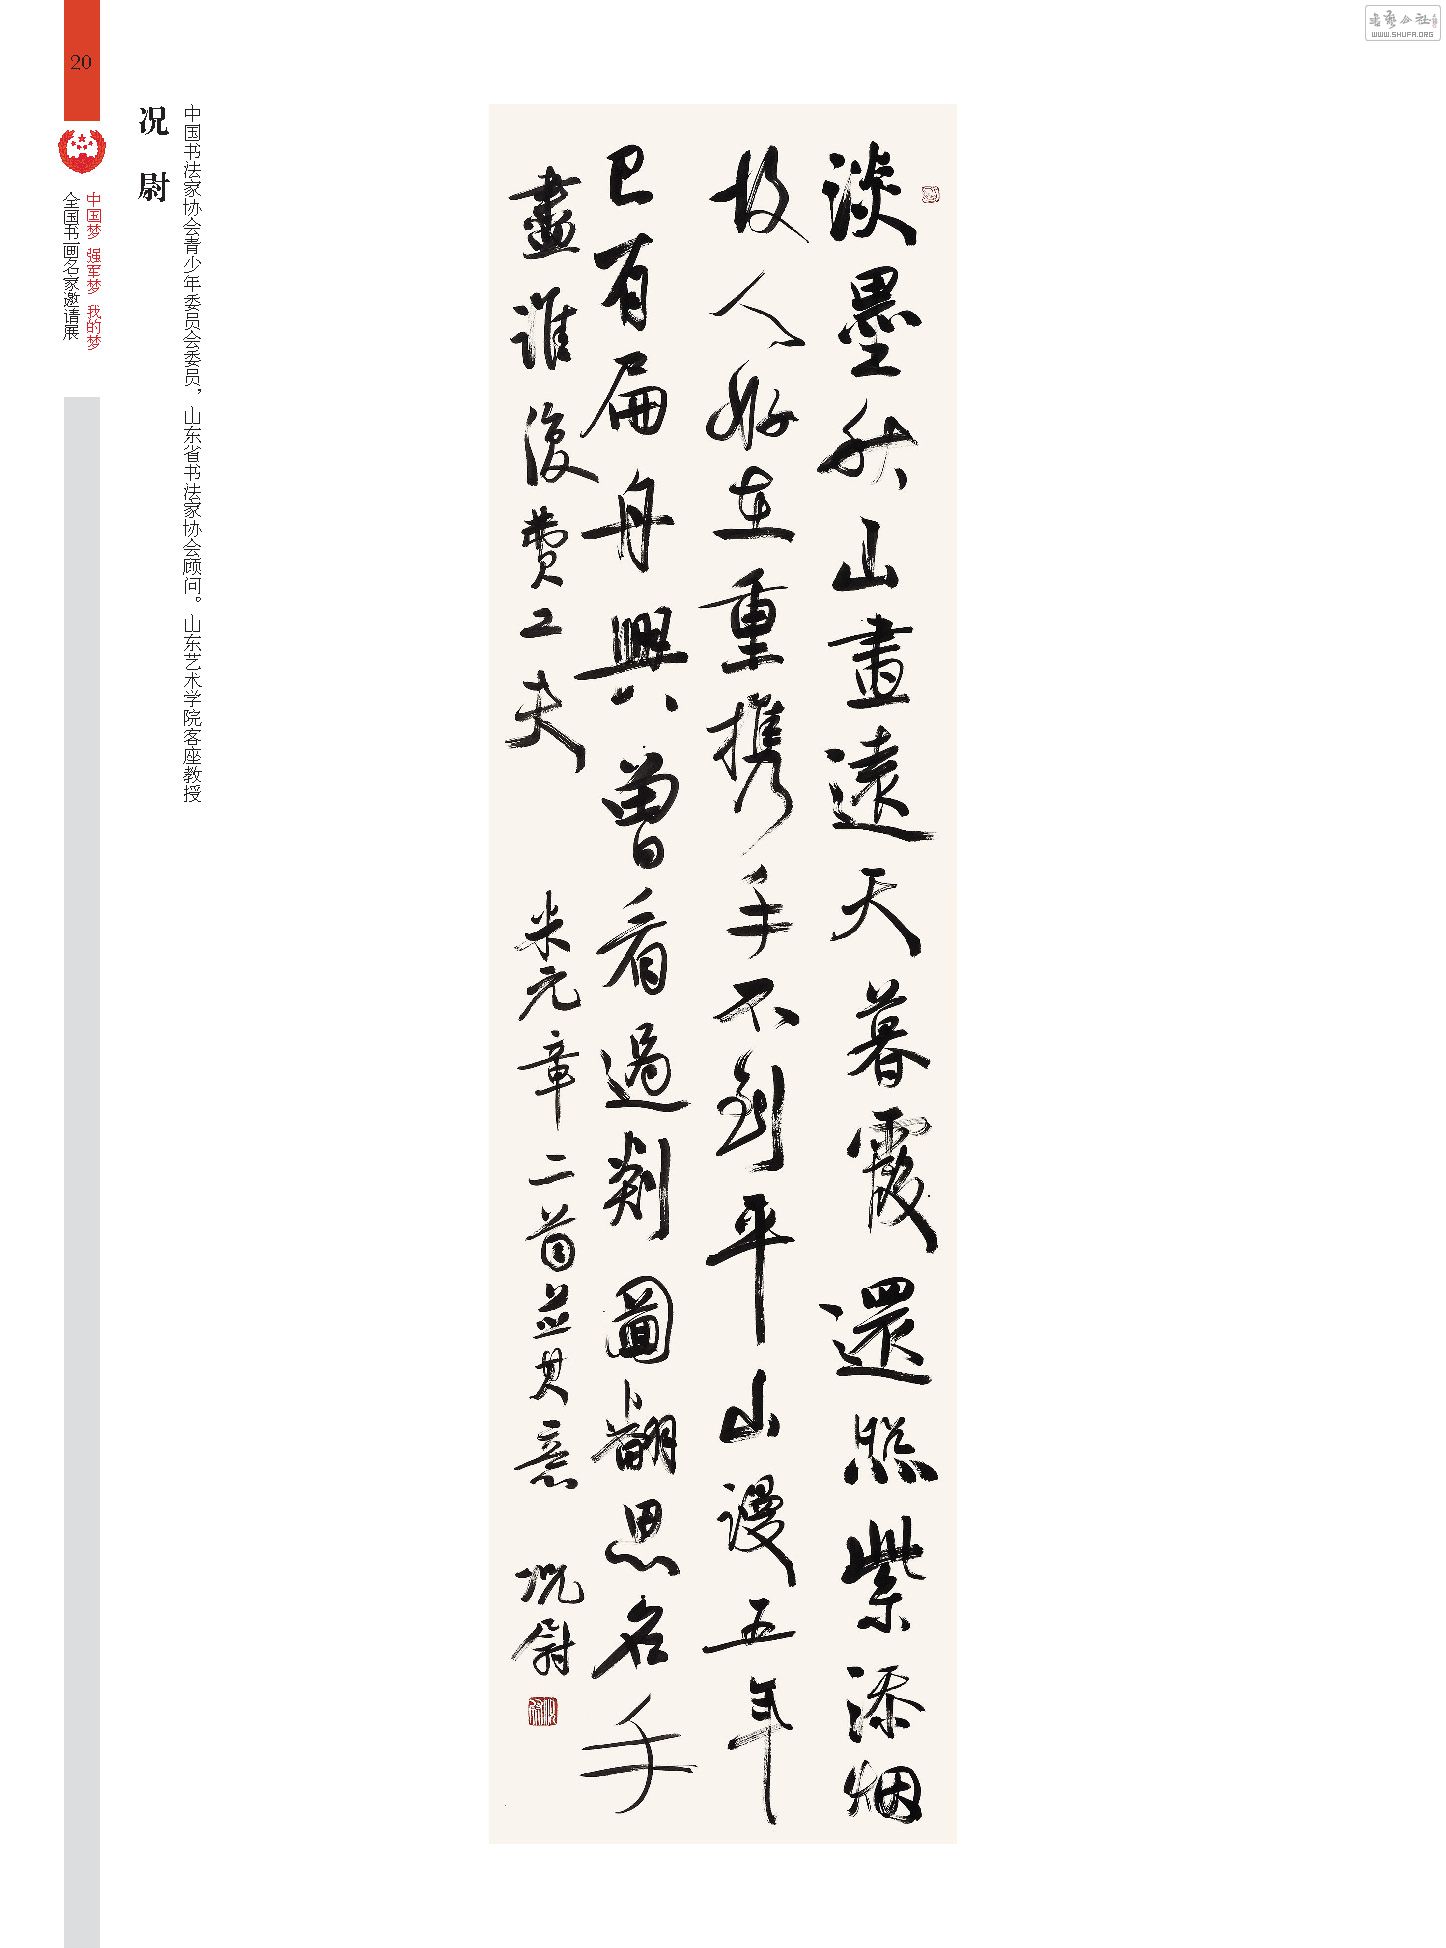 20
中国梦 强军梦 我的梦
全国书画名家邀请展
况 尉
中国书法家协会青少年委员会委员，山东省书法家协会顾问。山东艺术学院客座教授
淡墨秋山畫遠天暮霞還照紫添烟
故人好在重携手不到平山漫五年
已有扁舟興曾看過剡圖翻思名手
盡誰復費工夫 米元章二首並其意 况尉
書藝公社
WWW.SHUFA.ORG